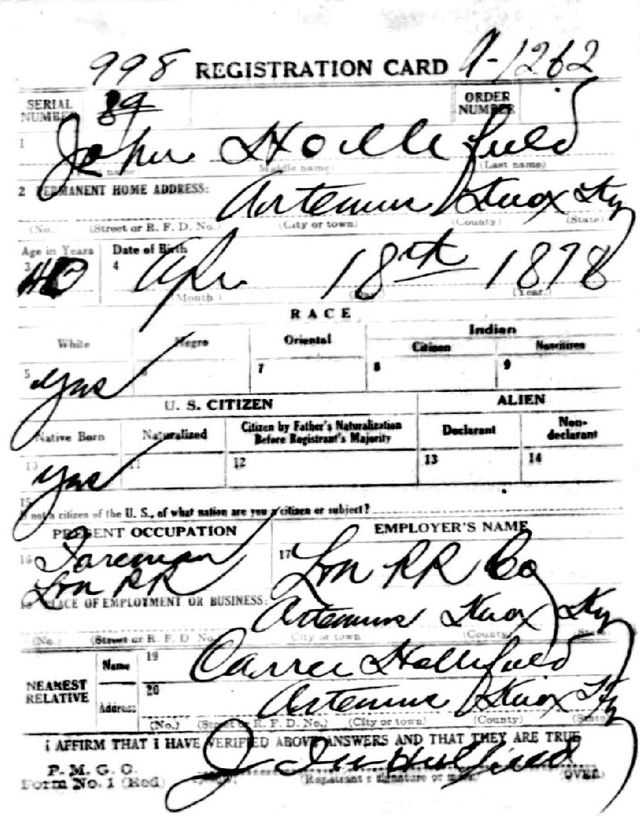 998 REGISTRATION CARD A-1262
SERIAL NUMBER 89 ORDER NUMBER
1 John Hollifield
(Middle name) (Last name)
2 PERMANENT HOME ADDRESS: Artemus Knox Ky
(No.) (Street or R. F. D. No.) (City or town) (County) (State)
Age in Years Date of Birth
3 40 4 Apr. 18th 1878
(Month) (Year)
RACE
White Negro Oriental Indian
Citizen Noncitizen
5 Yes 6 7 8 9
U. S. CITIZEN ALIEN
Native Born Naturalized Citizen by Father's Naturalization Before Registrant's Majority Declarant Non-declarant
Yes 11 12 13 14
15
If not a citizen of the U. S., of what nation are you a citizen or subject?
PRESENT OCCUPATION EMPLOYER'S NAME
16 Foreman 17
RR RR Co
PLACE OF EMPLOYMENT OR BUSINESS: Artemus Knox Ky
(No.) (Street or R. F. D. No.) (City or town) (County) (State)
NEAREST RELATIVE
Name 19 Carrie Hollifield
Address 20 Artemus Knox Ky
(No.) (Street or R. F. D. No.) (City or town) (County) (State)
I AFFIRM THAT I HAVE VERIFIED ABOVE ANSWERS AND THAT THEY ARE TRUE
P. M. G. O.
Form No. 1 (Red) (Registrant's signature or mark) (OVER)